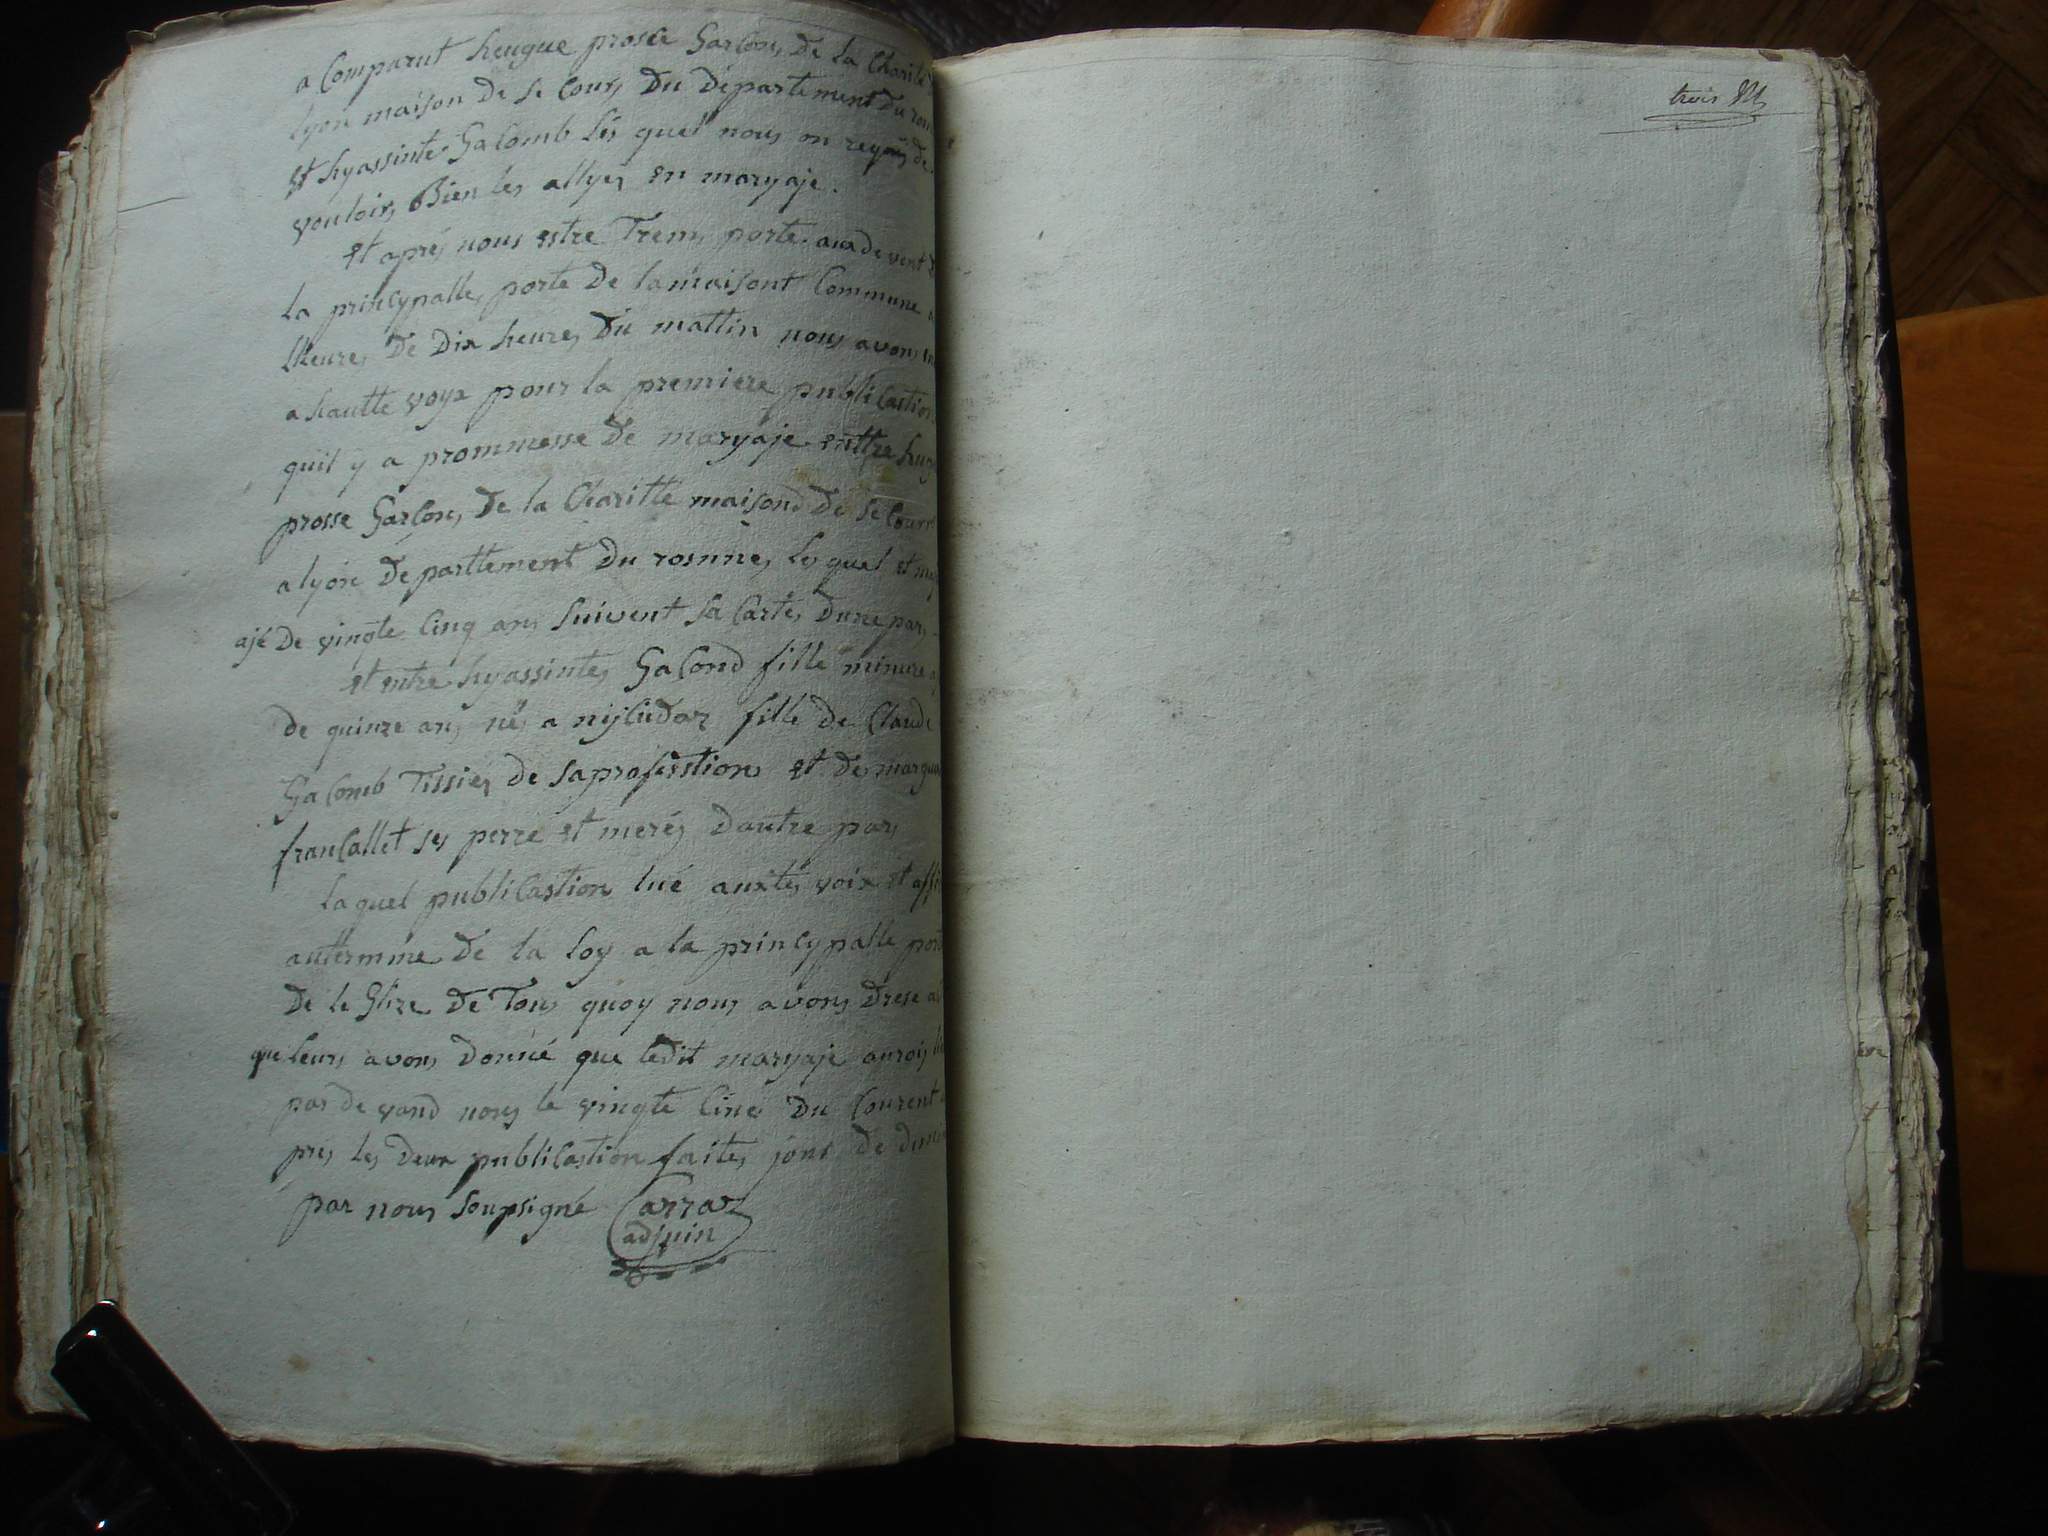 a Comparut heugue prosse Garcon, de la Charité
lyon maison de se Cour, Du Département Du
et hyassinte Galomb les quel nous on de
vouloir, Bien les allyer en maryaje.
et aprés nous estre Trens porte au devent
la princypalle, porte De la maisont Commune
lheure, De Dix heure, Du mattin nous avons
a hautte voyx pour la premiere publicastion
quil y a prommesse De maryaje enttre
prosse Garcon, De la Charitté maisond De Se Cour
a lyon Départtement Du rosnne, le quel et
ajé De vingte Cinq ans Suivent Sa Carte, Dune par,
et entre hyassinte, Galond fille mineure
De quinze ans né, a fille De Claude
Galomb Tissier, De saprofesstion et De
francallet ses perre et meré, Dautre par,
la quel publicastion lué auxte, voix et
autermme De la loy a la princypalle
De le Glize De Tous quoy nous avons Drese
que leurs avons Donné que ledit maryaje aurois
par De vand nous le vingte Cinc Du Courent
pres les Deux publicastion faite, jour De
par nous Soupsigné Carraz
adjuin
trois